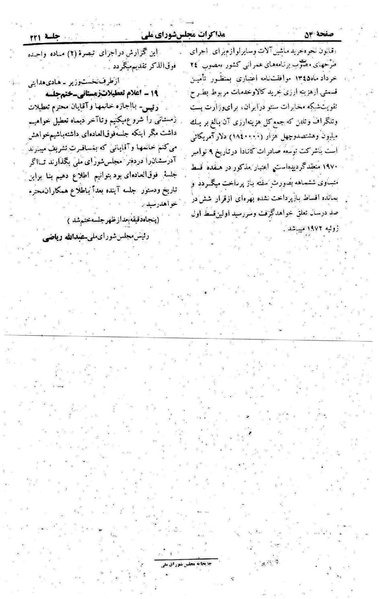 صفحهٔ ۵۴
مذاکرات مجلس شورای ملی
جلسهٔ ۲۲۱
قانون نحوه خرید ماشین‌آلات و سایر لوازم برای اجرای
طرحهای مصوب برنامه‌های عمرانی کشور مصوب ۲۴
خرداد ماه ۱۳۴۵ موافقت‌نامه اعتباری بمنظور تأمین
قسمتی از هزینه ارزی خرید کالا و خدمات مربوط بطرح
تقویت شبکه مخابرات سنتو در ایران، برای وزارت پست
و تلگراف و تلفن که جمع کل هزینه ارزی آن بالغ بر یک
میلیون و هشتصد و چهل هزار (۱۸۴۰۰۰۰) دلار آمریکائی
است با شرکت توسعه صادرات کانادا در تاریخ ۹ نوامبر
۱۹۷۰ منعقد گردیده است. اعتبار مذکور در هفده قسط
متساوی ششماهه بصورت سفته باز پرداخت میگردد و
بمانده اقساط باز پرداخت نشده بهره‌ای از قرار شش در
صد در سال تعلق خواهد گرفت و سررسید اولین قسط اول
ژوئیه ۱۹۷۲ میباشد.
این گزارش در اجرای تبصرهٔ (۲) ماده واحده
فوق‌الذکر تقدیم میگردد.
از طرف نخست‌وزیر - هادی هدایتی
۱۹ - اعلام تعطیلات زمستانی - ختم جلسه
رئیس - با اجازه خانمها و آقایان محترم تعطیلات
زمستانی را شروع میکنیم و تا آخر دیماه تعطیل خواهیم
داشت مگر اینکه جلسه فوق‌العاده‌ای داشته باشیم خواهش
می‌کنم خانمها و آقایانی که بمسافرت تشریف میبرند
آدرسشان را در دفتر مجلس شورای ملی بگذارند تا اگر
جلسهٔ فوق‌العاده‌ای بود بتوانیم اطلاع دهیم بنا براین
تاریخ و دستور جلسه آینده بعداً باطلاع همکاران محترم
خواهد رسید.
(پنجاه دقیقه بعد از ظهر جلسه ختم شد)
رئیس مجلس شورای ملی - عبدالله ریاضی
چاپخانه مجلس شورای ملی